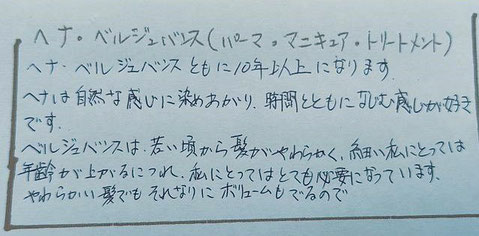 ヘナ・ベルジュバンス(パーマ・マニキュア・トリートメント)
ヘナ・ベルジュバンスともに10年以上になります.
ヘナは自然な感じに染めあがり、時間とともになじむ感じが好き
です.
ベルジュバンスは、若い頃から髪がやわらかく、細い私にとっては
年齢が上がるにつれ、私にとってはとても必要になっています.
やわらかい髪でもそれなりにボリュームもでるので